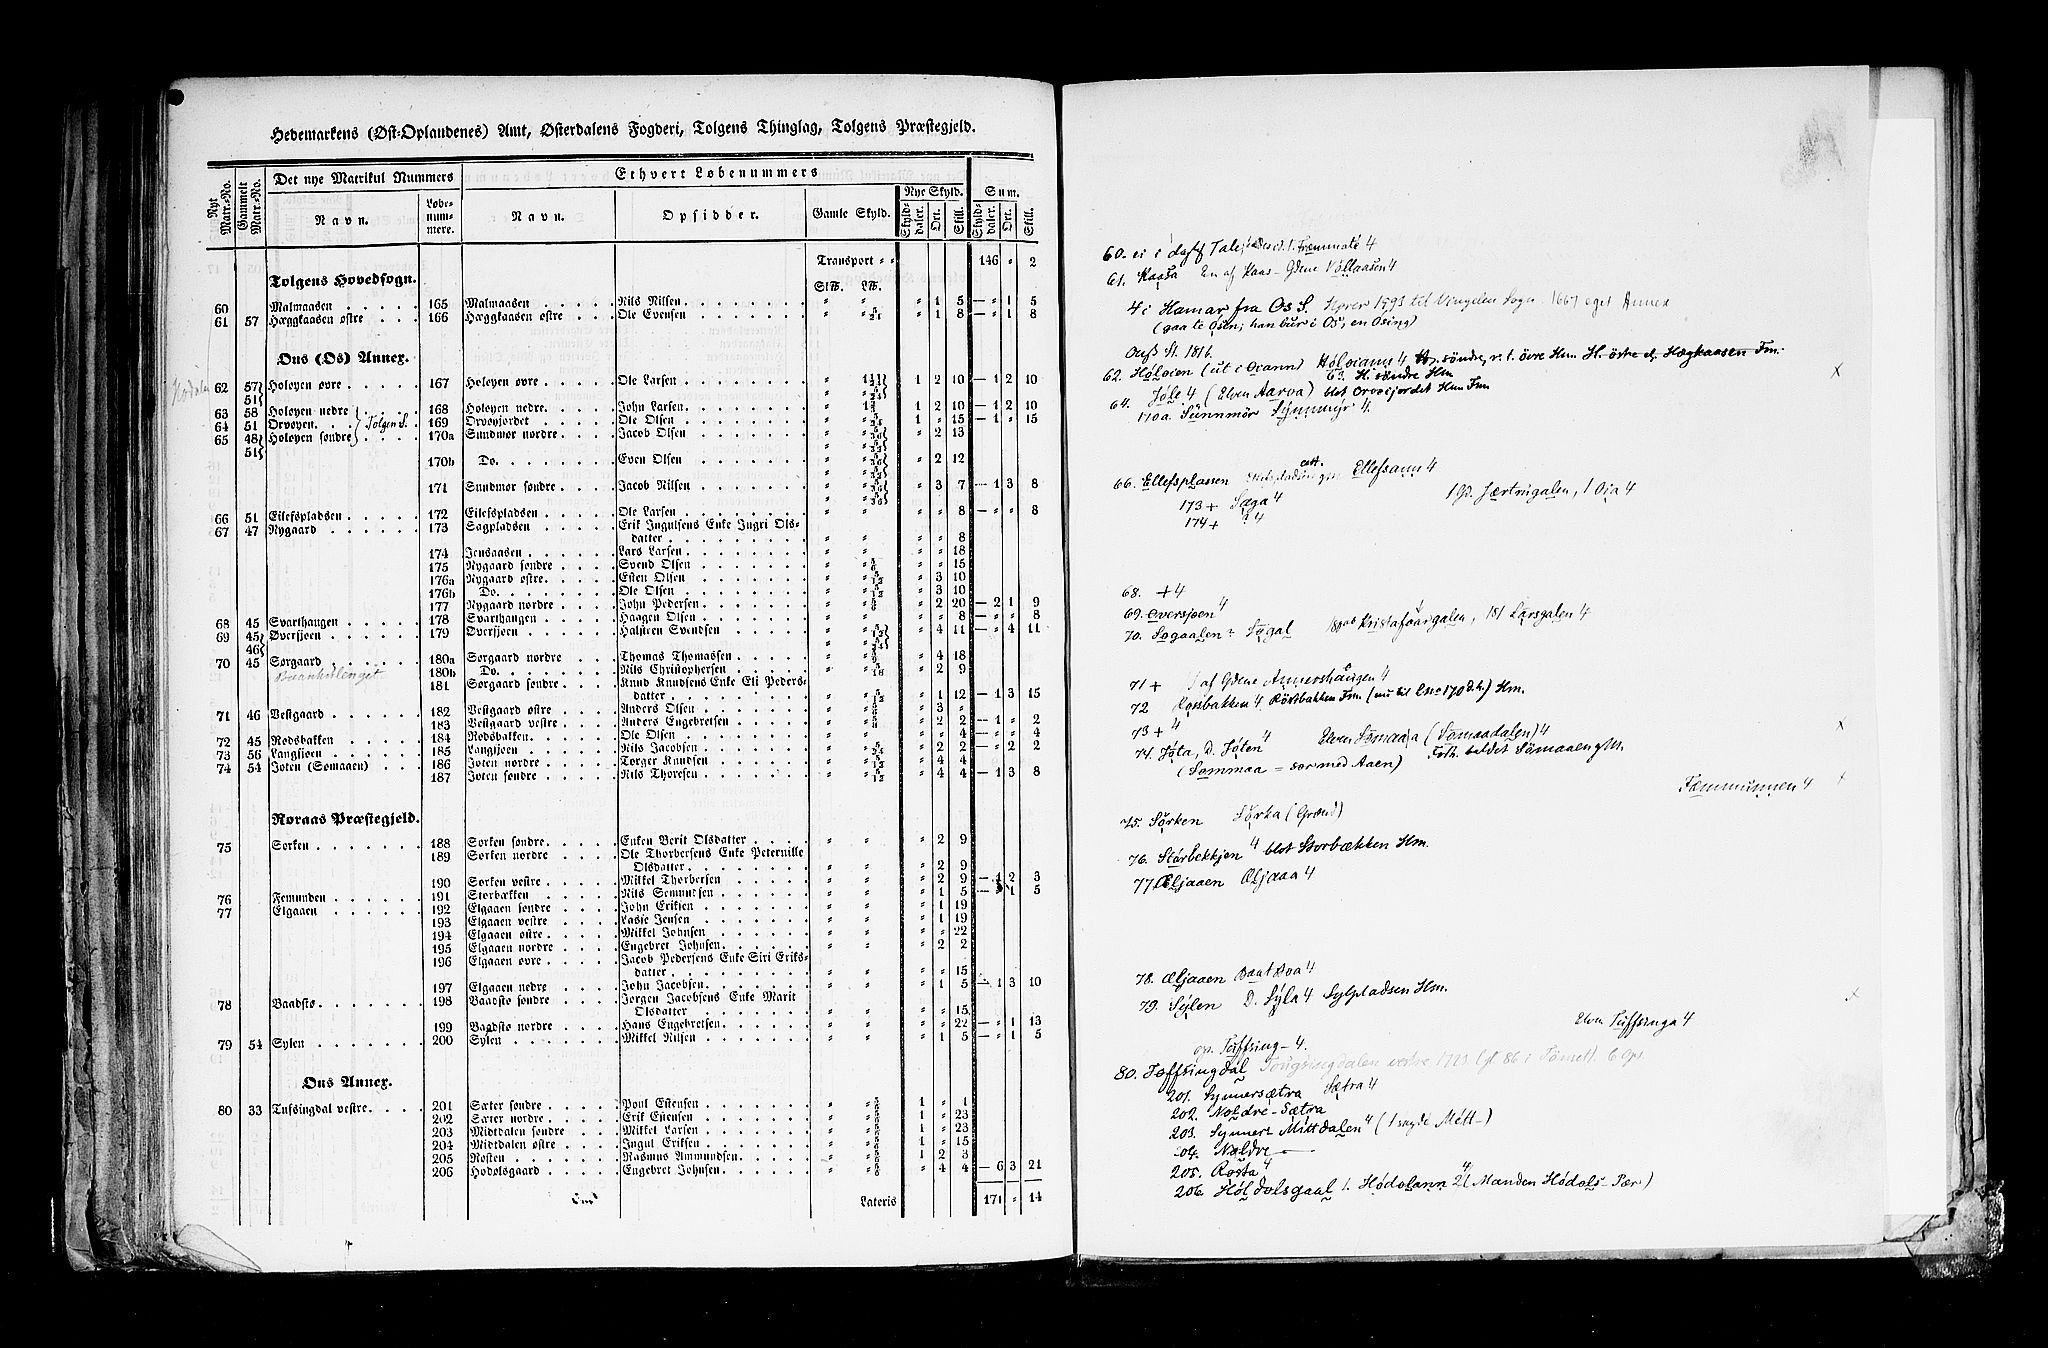 Hedemarkens (Øst-Oplandenes) Amt, Østerdalens Fogderi, Tolgens Thinglag, Tolgens Præstegjeld.
Nyt Matr.-No. Gammelt Matr.-No. Det nye Matrikul Nummers Ethvert Løbenummers
Navn. Løbenummere. Navn. Opsidder. Gamle Skyld. Nye Skyld. Sum.
Skylddaler. Ort. Skill. Skylddaler. Ort. Skill.
Transport 146 " 2
Tolgens Hovedsogn.
60 Malmaasen 165 Malmaasen Nils Nilsen " 1 5 — " 1 5
61 57 Hæggkaasen østre 166 Hæggkaasen østre Ole Evensen " 1 8 — " 1 8
Ous (Os) Annex.
62 57 51 Holøyen øvre 167 Holøyen øvre Ole Larsen 1 2 10 — 1 2 10
63 58 Holøyen nedre 168 Holøyen nedre John Larsen 1 2 10 — 1 2 10
64 51 Orvøyen Tolgen S. 169 Orvøyjordet Ole Olsen 1 " 15 — 1 " 15
65 48 51 Holøyen søndre 170a Sundmør nordre Jacob Olsen " 2 13
170b Do. Even Olsen " 2 12
171 Sundmør søndre Jacob Nilsen " 3 7 — 1 3 8
66 51 Eilefspladsen 172 Eilefspladsen Ole Larsen " " 8 — " " 8
67 47 Nygaard 173 Sagpladsen Erik Ingulfsens Enke Ingri Olsdatter " " 8
174 Jensaasen Lars Larsen " " 18
175 Nygaard søndre Svend Olsen " " 15
176a Nygaard østre Esten Olsen " 3 10
176b Do. Ole Olsen " 3 10
177 Nygaard nordre John Pedersen " 2 20 — 2 1 9
68 45 Svarthaugen 178 Svarthaugen Haagen Olsen " " 8 — " " 8
69 45 46 Oversjøen 179 Oversjøen Halsteen Svendsen " 4 11 — " 4 11
70 45 Sørgaard 180a Sørgaard nordre Thomas Thomassen " 4 18
180b Do. Nils Christophersen " 2 9
181 Sørgaard søndre Knud Knudsens Enke Eli Pedersdatter " 1 12 — 1 3 15
71 46 Vestgaard 182 Vestgaard østre Anders Olsen " 3 "
183 Vestgaard vestre Anders Engebretsen " 2 2 — 1 " 2
72 45 Rødsbakken 184 Rødsbakken Ole Olsen " " 4 — " " 4
73 56 Langsjøen 185 Langsjøen Nils Jacobsen " 2 2 — " 2 2
74 54 Joten (Sømaaen) 186 Joten nordre Torger Knudsen " 4 4
187 Joten søndre Nils Thoresen " 4 4 — 1 3 8
Røraas Præstegjeld.
75 Sorken 188 Sorken søndre Enken Berit Olsdatter " 2 9
189 Sorken nordre Ole Thorbersens Enke Peternille Olsdatter " 2 9
190 Sorken vestre Mikkel Thorbersen " 2 9 — 1 2 3
76 Femunden 191 Storbækken Nils Semundsen " 1 5 — " 1 5
77 Elgaaen 192 Elgaaen søndre John Eriksen " 1 19
193 Elgaaen vestre Lasse Jensen " 1 19
194 Elgaaen østre Mikkel Johnsen " " 22
195 Elgaaen nordre Engebret Johnsen " 2 2
196 Elgaaen øvre Jacob Pedersens Enke Siri Eriksdatter " " 15
197 Elgaaen nedre John Jacobsen " 1 5 — 1 3 10
78 Baadstø 198 Baadstø søndre Jørgen Jacobsens Enke Marit Olsdatter " " 15
199 Baadstø nordre Hans Engebretsen " " 22 — " 1 13
79 54 Sylen 200 Sylen Mikkel Nilsen " 1 5 — " 1 5
Ous Annex.
80 33 Tufsingdal vestre 201 Sæter søndre Poul Estensen 1 " 1
202 Sæter nordre Erik Estensen 1 " 23
203 Midtdalen søndre Mikkel Larsen 1 " 23
204 Midtdalen østre Ingul Eriksen 1 " 15
205 Røsten Rasmus Ammundsen 1 2 3
206 Hodølsgaard Engebret Johnsen " 4 4 — 6 3 21
Lateris 171 " 14
61. Kaasa En af Kaas-Gdene Vollaasen 4
4 i Hamar fra Os S. Hører 1593 til Vingelen Sogn. 1667 eget Annex
(gaa te Osen; han bur i Os, en Osing)
Ouß St. 1816.
63. H. søndre Hm
64. Jole 4 (Elven Aarva) blot Orvøijordet Hm Fm
170a. Sunnmør Synnmyr 4.
66. Ellefsplassen Ellefsann 4
173 + Saga 4 1 Gd. Jærtrugalen, 1 Oia 4
174 + ? 4
68. + 4
69. Oversjoen 4
70. Sogaalen = Sogal 180ab Kristafåårgalen, 181 Larsgalen 4
71 + af Gdene Annershaugen 4
72 Rossbakken 4 Röstbakken Fm. (nu til Lne 170 d.h.) Hm.
73 + 4
74. Jota, D. Joten 4 Elven Sömaaa (Sömaadalen) 4
(Sommaa = sør med Aaen)
Fæmmunnen 4
75. Sörken Sörka (Grænd)
76. Storbekkjen 4 blot Storbækken Hm.
77. Æljaaen Æljaaa 4
78. Æljaaen Baatstoa 4
79. Sylen D. Syla 4 Sylpladsen Hm.
Elven Tuffsinga 4
gp. Tuffsing- 4.
80. Toffsingdal
201. Synnersætra Sætra 4
202. Noldre-Sætra
203. Synnert Mittdalen 4 (1 sagde Mett-)
204. Noldre —
205. Rosta 4
206. Höldolsgaal 1. Hödolann 4 2 (Manden Hödols-Pær)